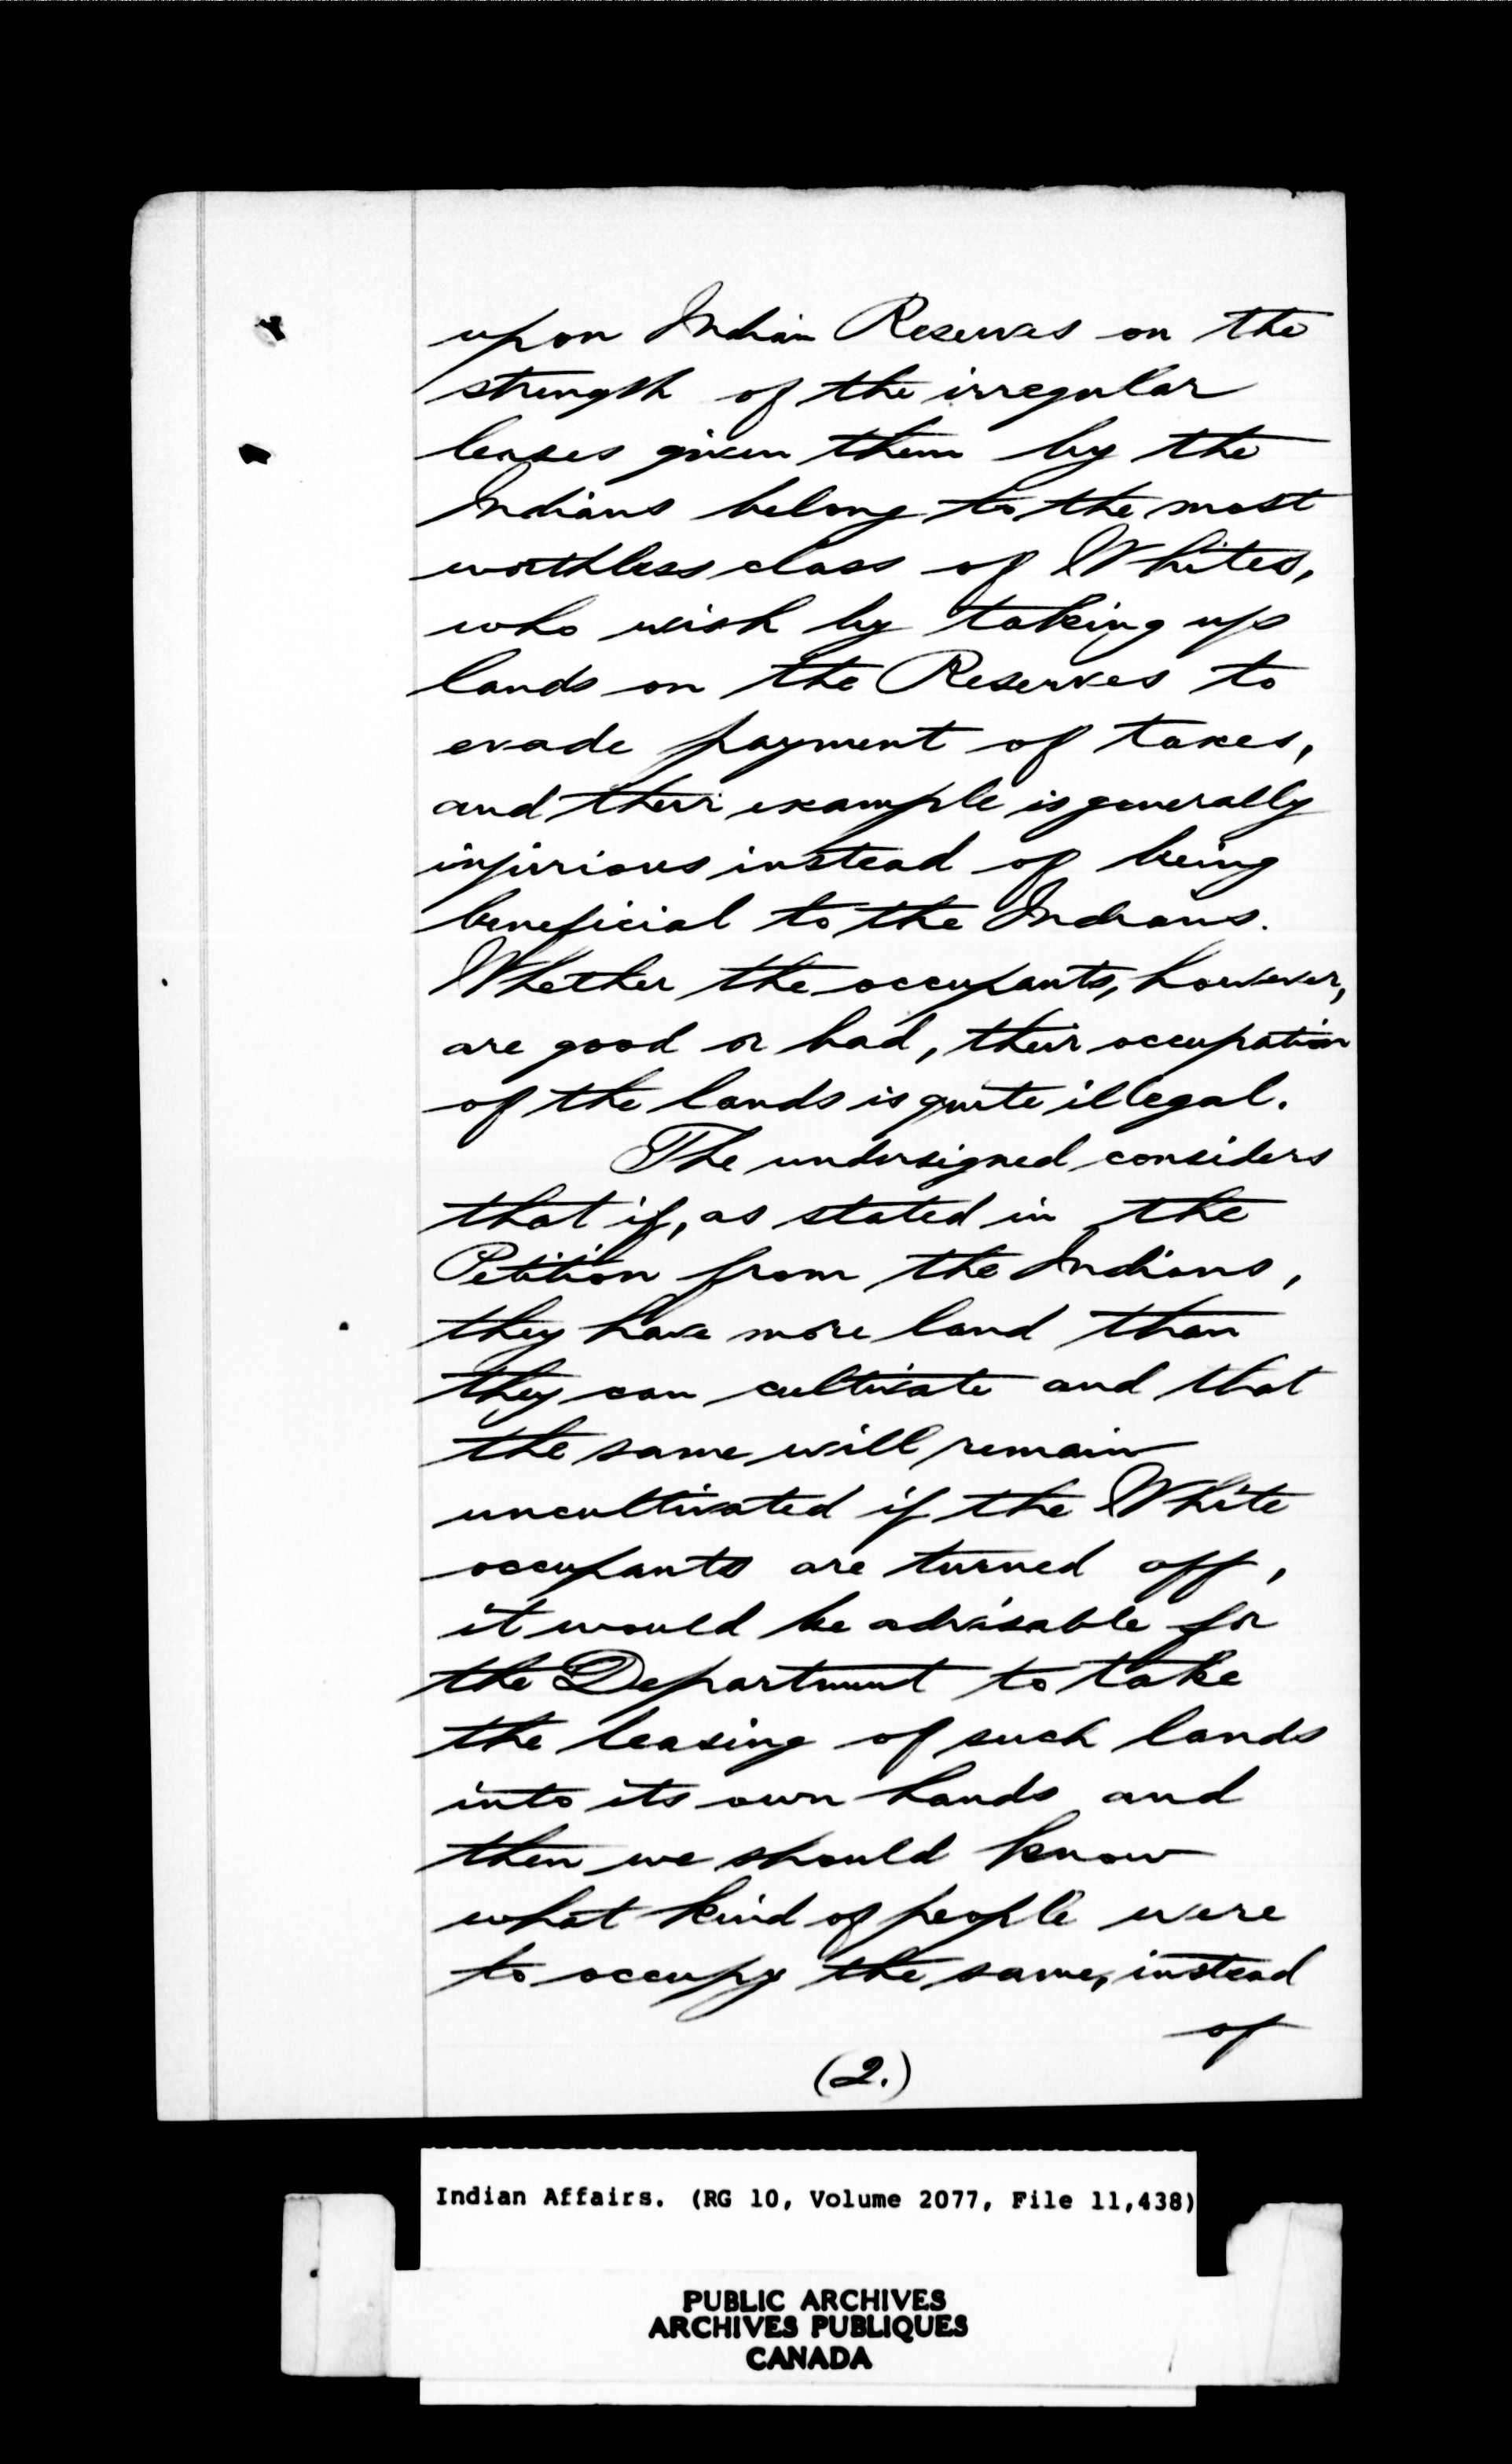 upon Indian Reserves on the
strength of the irregular
leases given them by the
Indians belong to the most
worthless class of Whites,
who wish by taking up
lands on the Reserves to
evade payment of taxes,
and their example is generally
injurious instead of being
beneficial to the Indians.
Whether the occupants, however,
are good or bad, their occupation
of the lands is quite illegal.
The undersigned considers
that if, as stated in the
Petition from the Indians,
they have more land than
they can cultivate and that
the same will remain
uncultivated if the White
occupants are turned off,
it would be advisable for
the Department to take
the leasing of such lands
into its own hands and
then we should know
what kind of people were
to occupy the same, instead
of
(2.)
Indian Affairs. (RG 10, Volume 2077, File 11,438)
PUBLIC ARCHIVES
ARCHIVES PUBLIQUES
CANADA